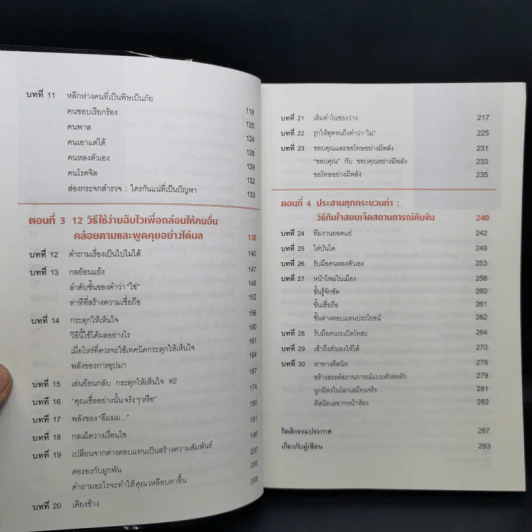 บทที่ 11 หลีกห่างคนที่เป็นพิษเป็นภัย
คนชอบเรียกร้อง 118
คนพาล 120
คนเอาแต่ได้ 124
คนหลงตัวเอง 128
คนโรคจิต 129
ส่องกระจกสำรวจ : ใครกันแน่ที่เป็นปัญหา 132
133
ตอนที่ 3 12 วิธีใช้ง่ายฉับไวเพื่อกล่อมให้คนอื่น
คล้อยตามและพูดคุยอย่างได้ผล 138
บทที่ 12 คำถามเรื่องเป็นไปไม่ได้ 140
บทที่ 13 กลย้อนแย้ง 147
ลำดับขั้นของคำว่า "ใช่" 149
ท่าทีที่สร้างความเชื่อถือ 152
บทที่ 14 กระตุกให้เห็นใจ 156
วิธีนี้ใช้ได้ผลอย่างไร 160
เมื่อไหร่ที่ควรจะใช้เทคนิคกระตุกให้เห็นใจ
พลังของการอุปมา
บทที่ 15 เล่นย้อนกลับ กระตุกให้เห็นใจ #2
บทที่ 16 "คุณเชื่ออย่างนั้นจริงๆ หรือ"
บทที่ 17 พลังของ "อืมมม..."
บทที่ 18 กลเม็ดวางเงื่อนไข
บทที่ 19 เปลี่ยนจากต่างตอบแทนเป็นสร้างความสัมพันธ์
ต่อรองกับผูกพัน
คำถามอะไรจะทำให้คุณ เหลือบตาขึ้น
บทที่ 20 เคียงข้าง
บทที่ 21 เติมคำในช่องว่าง 217
บทที่ 22 รุกให้สุดจนถึงคำว่า "ไม่" 225
บทที่ 23 ขอบคุณและขอโทษอย่างมีพลัง 231
"ขอบคุณ" กับ ขอบคุณอย่างมีพลัง 233
ขอโทษอย่างมีพลัง 235
ตอนที่ 4 ประสานทุกกระบวนท่า :
วิธีทันใจสยบเจ็ดสถานการณ์คับขัน 240
บทที่ 24 ทีมงานยอดแย่ 242
บทที่ 25 ไต่บันได 250
บทที่ 26 รับมือคนหลงตัวเอง 253
บทที่ 27 หน้าใหม่ในเมือง 258
ขั้นรู้จักชัด 260
ขั้นเชื่อถือ 261
ขั้นต่างตอบแทนประโยชน์ 262
บทที่ 28 รับมือคนระเบิดโทสะ 264
บทที่ 29 เข้าถึงตัวเองให้ได้ 270
บทที่ 30 หาทางตีสนิท 278
สร้างสรรค์สถานการณ์แบบตัวต่อตัว 279
ผูกมิตรในโลกเสมือนจริง 281
ตีสนิทเลขาฯหน้าห้อง 282
กิตติกรรมประกาศ 287
เกี่ยวกับผู้เขียน 293